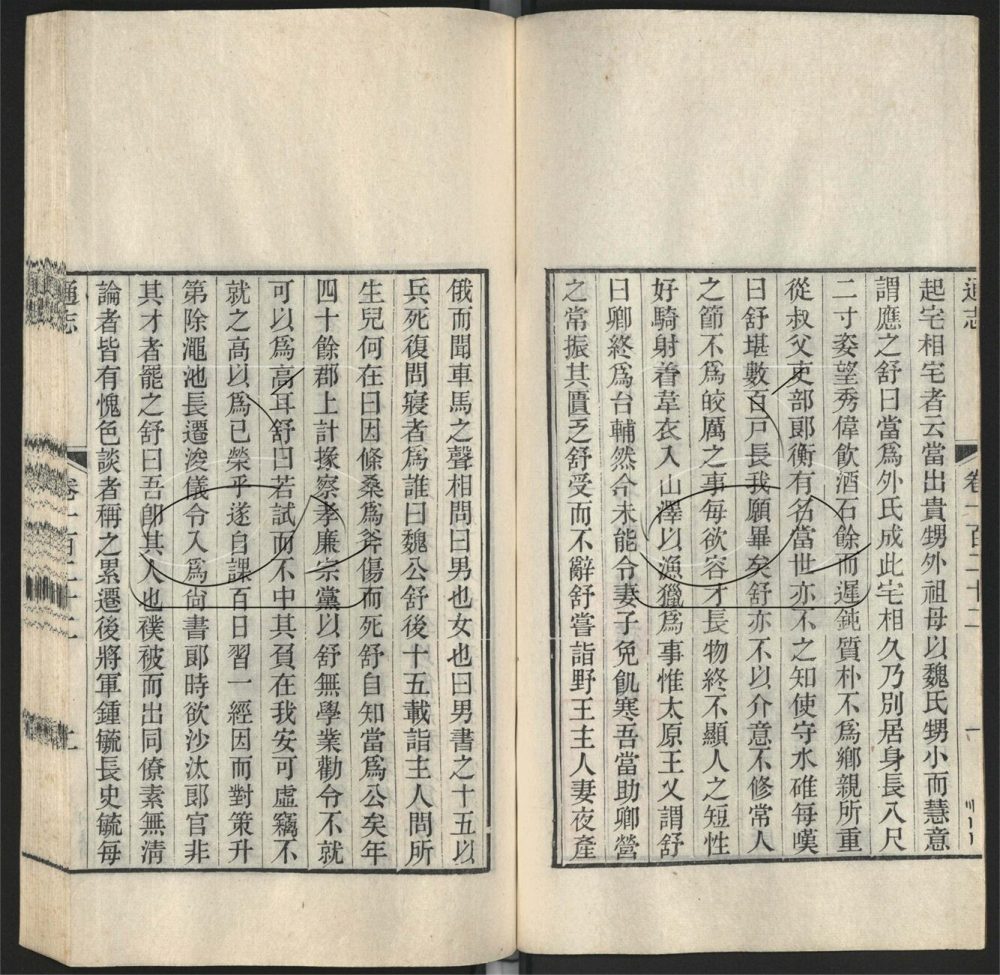 通志
卷一百二十二
一
起宅相宅者云當出貴甥外祖母以魏氏甥小而慧意
謂應之舒曰當爲外氏成此宅相久乃別居身長八尺
二寸姿望秀偉飲酒石餘而遲鈍質朴不爲鄉親所重
從叔父吏部郞衡有名當世亦不之知使守水碓每嘆
曰舒堪數百戸長我願畢矣舒亦不以介意不修常人
之節不爲皎厲之事每欲容才長物終不顯人之短性
好騎射着韋衣入山澤以漁獵爲事惟太原王乂謂舒
曰卿終爲台輔然今未能令妻子免飢寒吾當助卿營
之常振其匱乏舒受而不辭舒嘗詣野王主人妻夜產
俄而聞車馬之聲相問曰男也女也曰男書之十五以
兵死復問寢者爲誰曰魏公舒後十五載詣主人問所
生兒何在曰因條桑爲斧傷而死舒自知當爲公矣年
四十餘郡上計掾察孝廉宗黨以舒無學業勸令不就
可以爲高耳舒曰若試而不中其負在我安可虛竊不
就之高以爲己榮乎遂自課百日習一經因而對策升
第除澠池長遷浚儀令入爲尙書郞時欲沙汰郞官非
其才者罷之舒曰吾卽其人也襆被而出同僚素無清
論者皆有愧色談者稱之累遷後將軍鍾毓長史毓每
通志